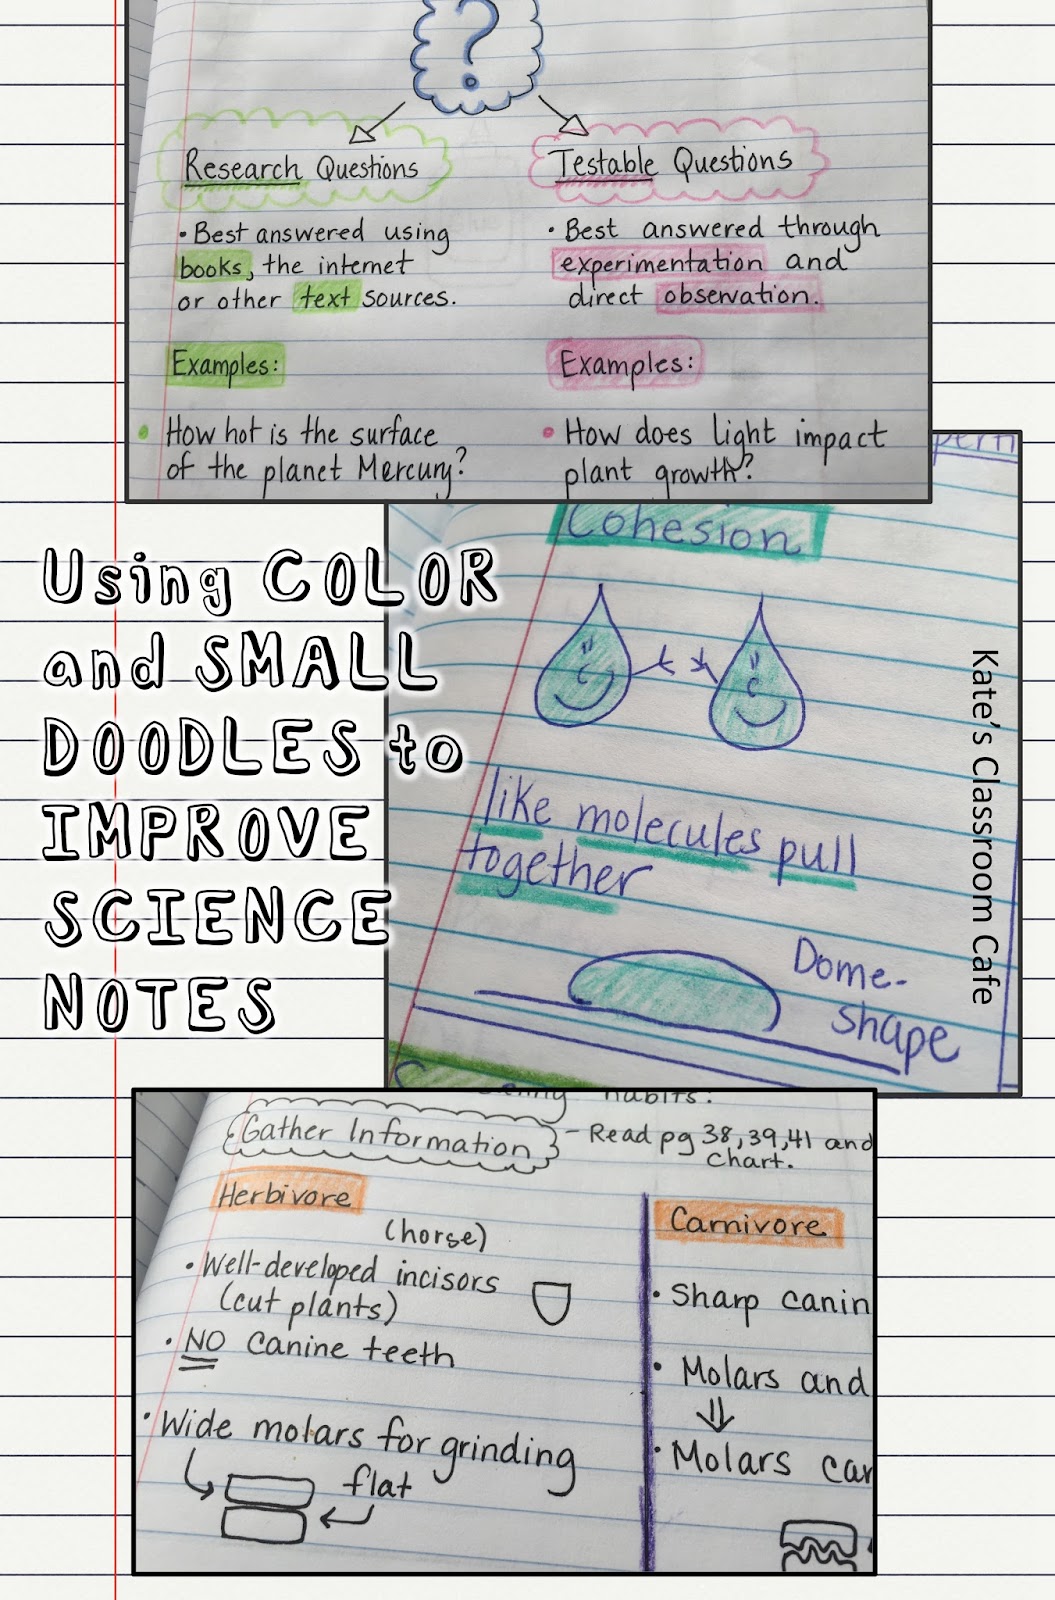 ?
Research Questions
• Best answered using
books, the internet
or other text sources.
Examples:
• How hot is the surface
of the planet Mercury?
Testable Questions
• Best answered through
experimentation and
direct observation.
Examples:
• How does light impact
plant growth?
Using COLOR
and SMALL
DOODLES to
IMPROVE
SCIENCE
NOTES
Cohesion
like molecules pull
together
Dome-
shape
Kate's Classroom Cafe
habits.
Gather Information - Read pg 38, 39, 41 and
chart.
Herbivore
(horse)
• Well-developed incisors
(cut plants)
• NO canine teeth
• Wide molars for grinding
flat
Carnivore
• Sharp canin
• Molars and
• Molars car